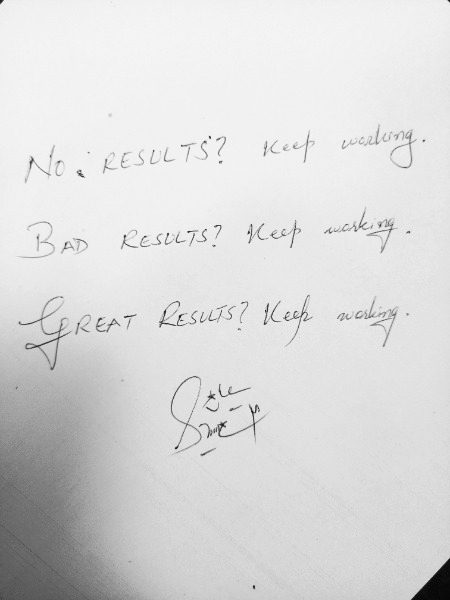 No. RESULTS? Keep working.
BAD RESULTS? Keep working.
GREAT RESULTS? Keep working.